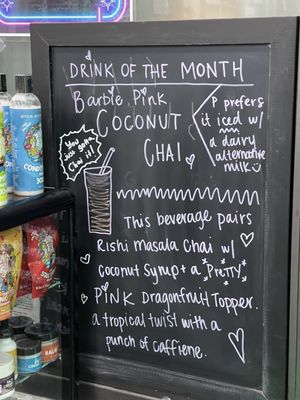 DRINK OF THE MONTH
Barbie Pink
COCONUT
CHAI
P prefers
it iced w/
a dairy
alternative
milk
You
just gotta
Chai it!
This beverage pairs
Rishi Masala Chai w/
Coconut Syrup + a PreTTY
PiNK Dragonfruit Topper.
a tropical twist with a
punch of caffiene.
COND
BALM